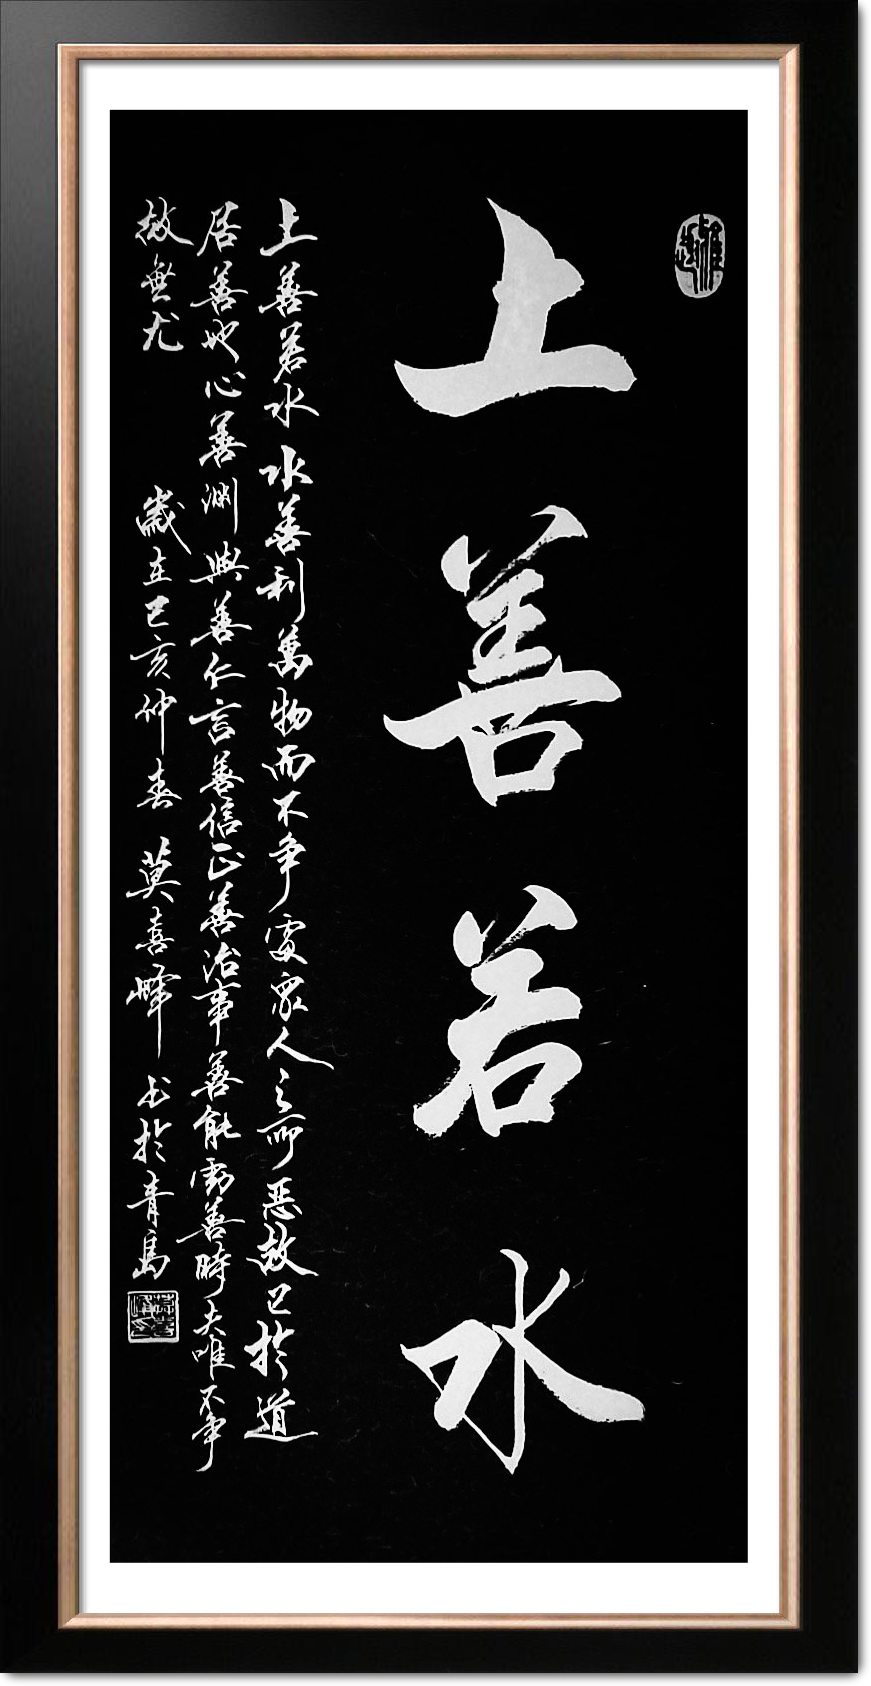 上善若水
上善若水水善利萬物而不争處眾人之所恶故於道
居善地心善渊與善仁言善信正善治事善能動善時夫唯不争
故無尤 歲在己亥仲春 莫喜峰 书於青島